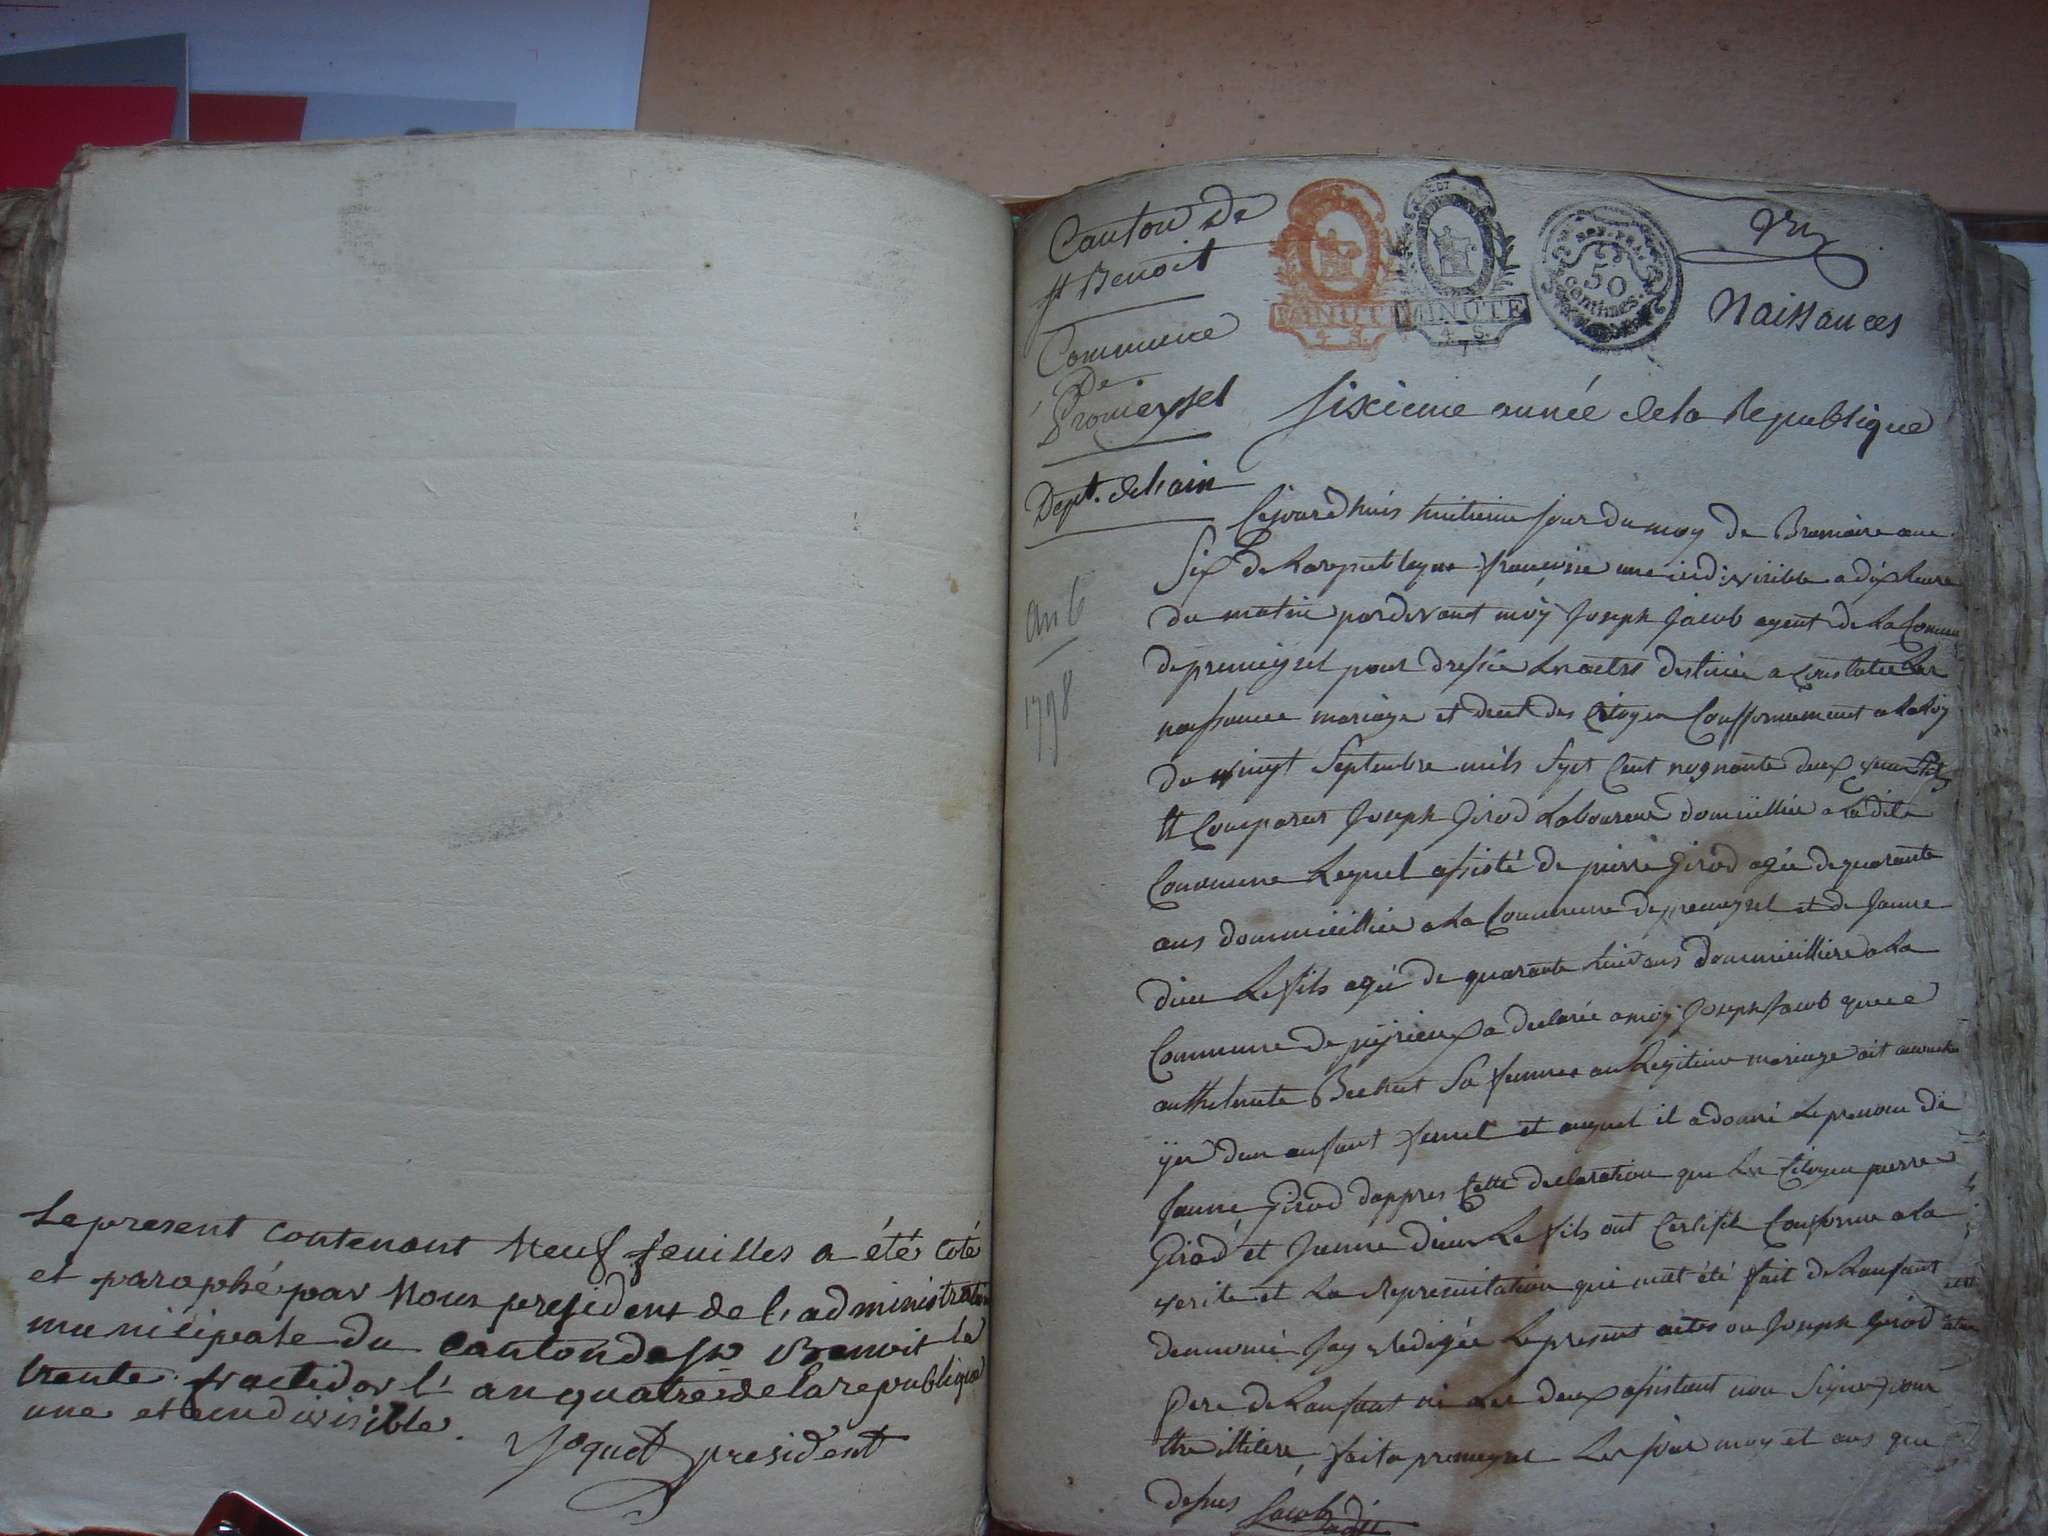 Le present contenant Neuf feuilles a été coté
et paraphé par Nous president de l'administration
municipale du canton de St Benoit le
trente fructidor l'an quatre de la republique
une et indivisible.
Joquet president
Canton de
St Benoit
Commune
De
Premeysel
Dept. de l'ain
an 6
1798
MINUTE
4 S.
MINUTE
4 S.
50
centimes.
Naissances
Sixieme année de la Republique
Cejourdhuis huitieme jour du moy de Brumaire ane
Six de Larepublique francoise une indivisible a dix heure
du matin pardevant moy Joseph Jacob agent de La Commune
de premeysel pour dressée Les actes destinée a Constatée Les
naissance mariage et decet des Citoyen Confformement a La Loy
du vingt Septembre mils Sept Cent nognante deux
et Comparus Joseph Girod Laboureur domicilliée a La dite
Commune Lequel assisté de pierre Girod agée de quarante
ans dommicilliée a La Commune de premeysel et de Janne
dieu Le fils agée de quarante huit ans dommicilliere a La
Commune de peyrieux a declarée a moy Joseph Jacob que
anthelmete Bechet Sa femme an Legitime mariage ait accouchée
yer dun anfant femel et auquel il a donné Le prenom de
Janne Girod dappres Cette declaration que Les Citoyen pierre
Girod et Janne dieu Le fils ont Certifié Conforme a La
verite et La Representation qui mat été fait de Lanfant
denommé Jay Redigée Le present actes ou Joseph Girod
pere de Lanfant ni Les deux assistent non Signé pour
ettre illitere, fait a premeysel Les jour moy et ans que
desus Jacob